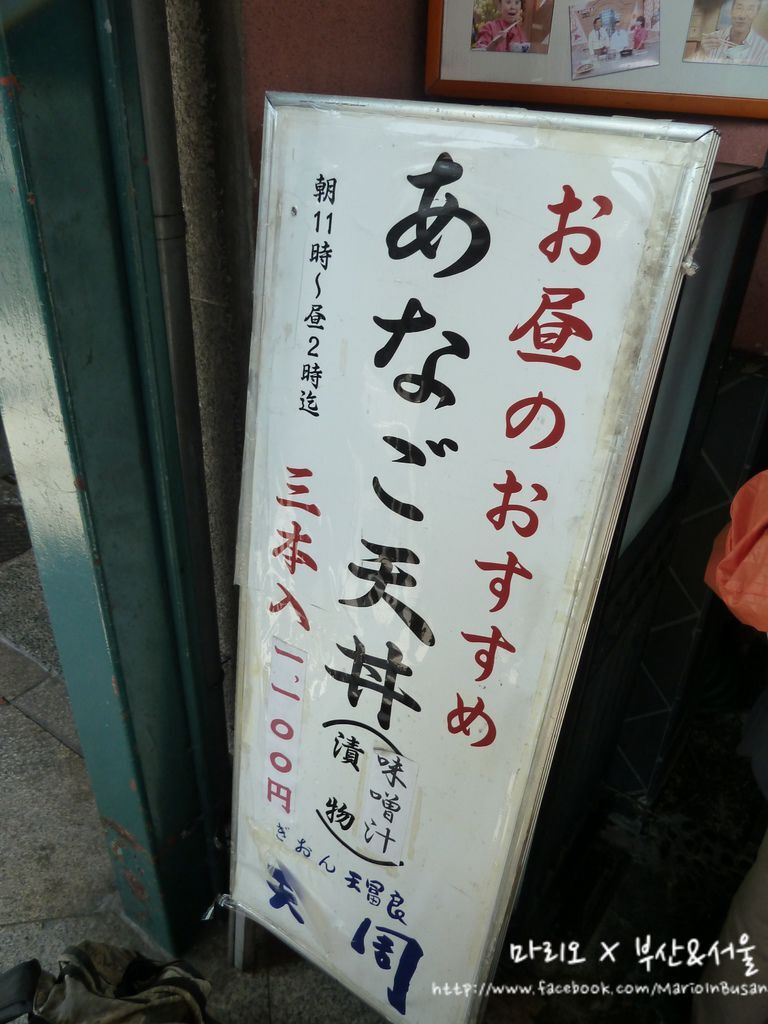 お昼のおすすめ
あなご天丼
（味噌汁
漬物）
朝11時～昼2時迄
三本入 一、一〇〇円
ぎおん 天冨良
天周
마리오 X 부산&서울
http://www.facebook.com/MarioInBusan